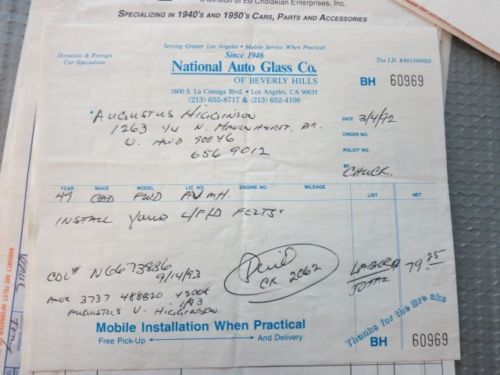 A Division of Ed Cholakian Enterprises, Inc.
SPECIALIZING IN 1940'S AND 1950'S CARS, PARTS AND ACCESSORIES
Serving Greater Los Angeles • Mobile Service When Practical
Domestic & Foreign
Car Specialists
Since 1946
National Auto Glass Co.
OF BEVERLY HILLS
1600 S. La Cienega Blvd. • Los Angeles, CA 90035
(213) 655-8717 & (213) 652-4106
Tax I.D.
BH 60969
AUGUSTUS HIGGINSON
1263 1/4 N.
W. HWD 90046
656 9012
DATE 3/4/92
ORDER NO.
POLICY NO.
BY CHUCK
YEAR MAKE MODEL LIC. NO. ENGINE NO. MILEAGE LIST NET
49 CAD FWD
INSTALL YOUR FELTS.
CDL# N6673886
9/14/93
3737 488820
1/93
AUGUSTUS V. HIGGINSON
Paid
CK 2062
LABOR
TOTAL
79.25
Thanks for the Break
Mobile Installation When Practical
Free Pick-Up and Delivery
BH 60969